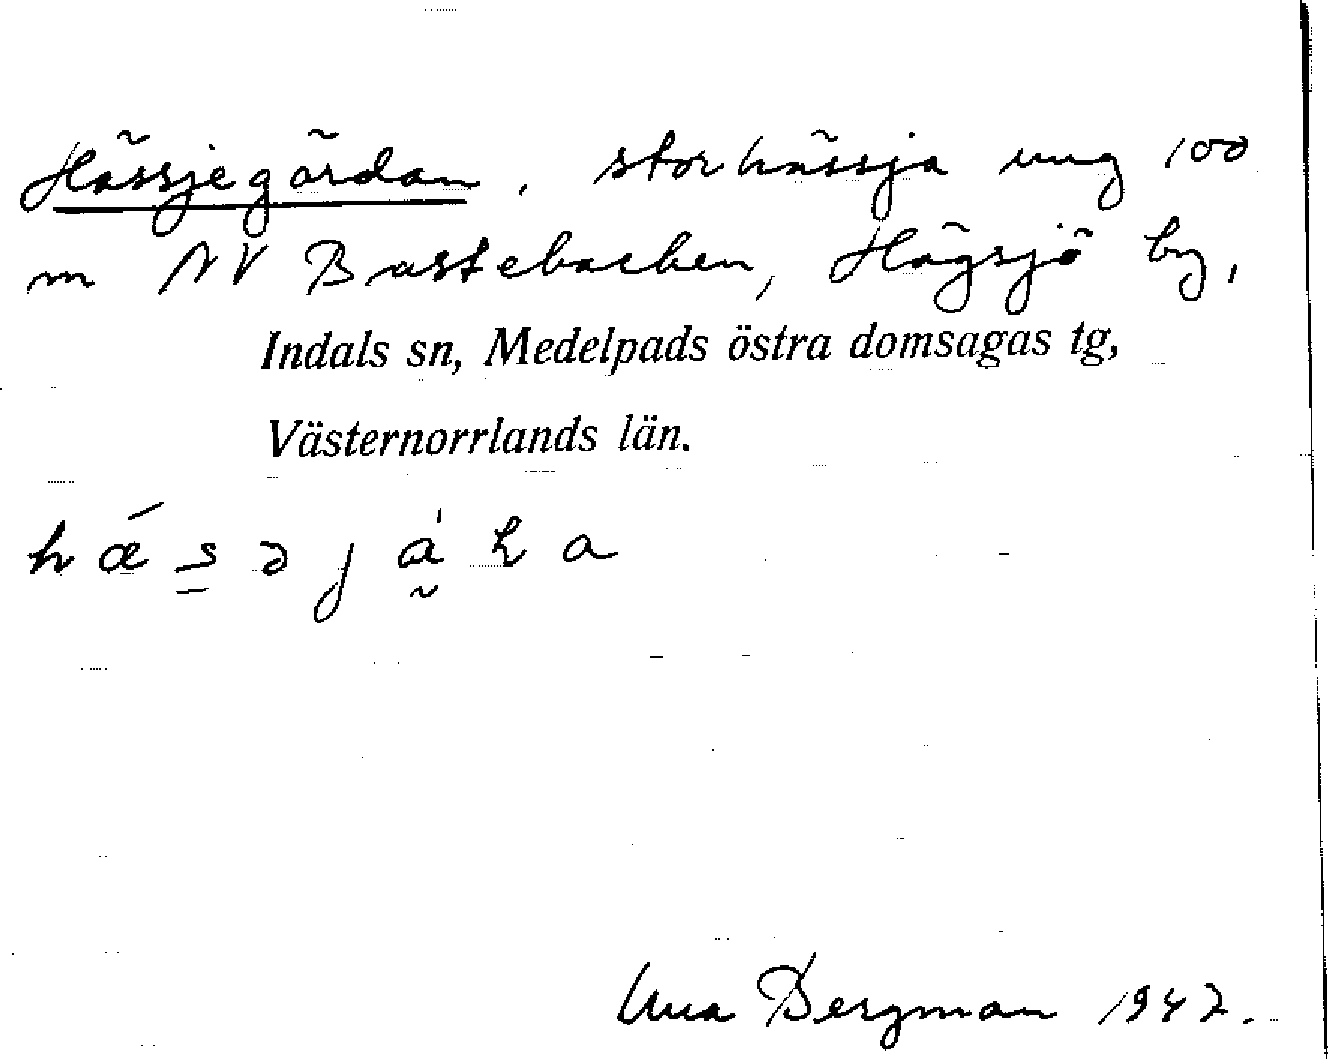 Hässjegärdan, storhässja ung 100
m NV Bastebacken, Högsjö by,
Indals sn, Medelpads östra domsagas tg,
Västernorrlands län.
Una Bergman 1942.